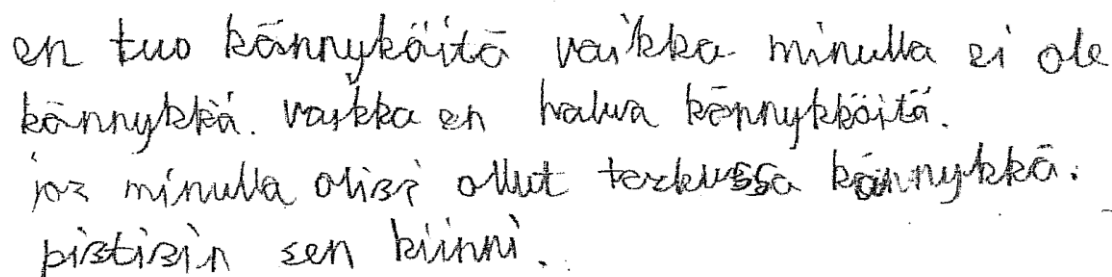 en tuo kännyköitä vaikka minulla ei ole
kännykkä. vaikka en halua kännykköitä.
jos minulla olisi ollut taskussa kännykkä.
pistisin sen kiinni.